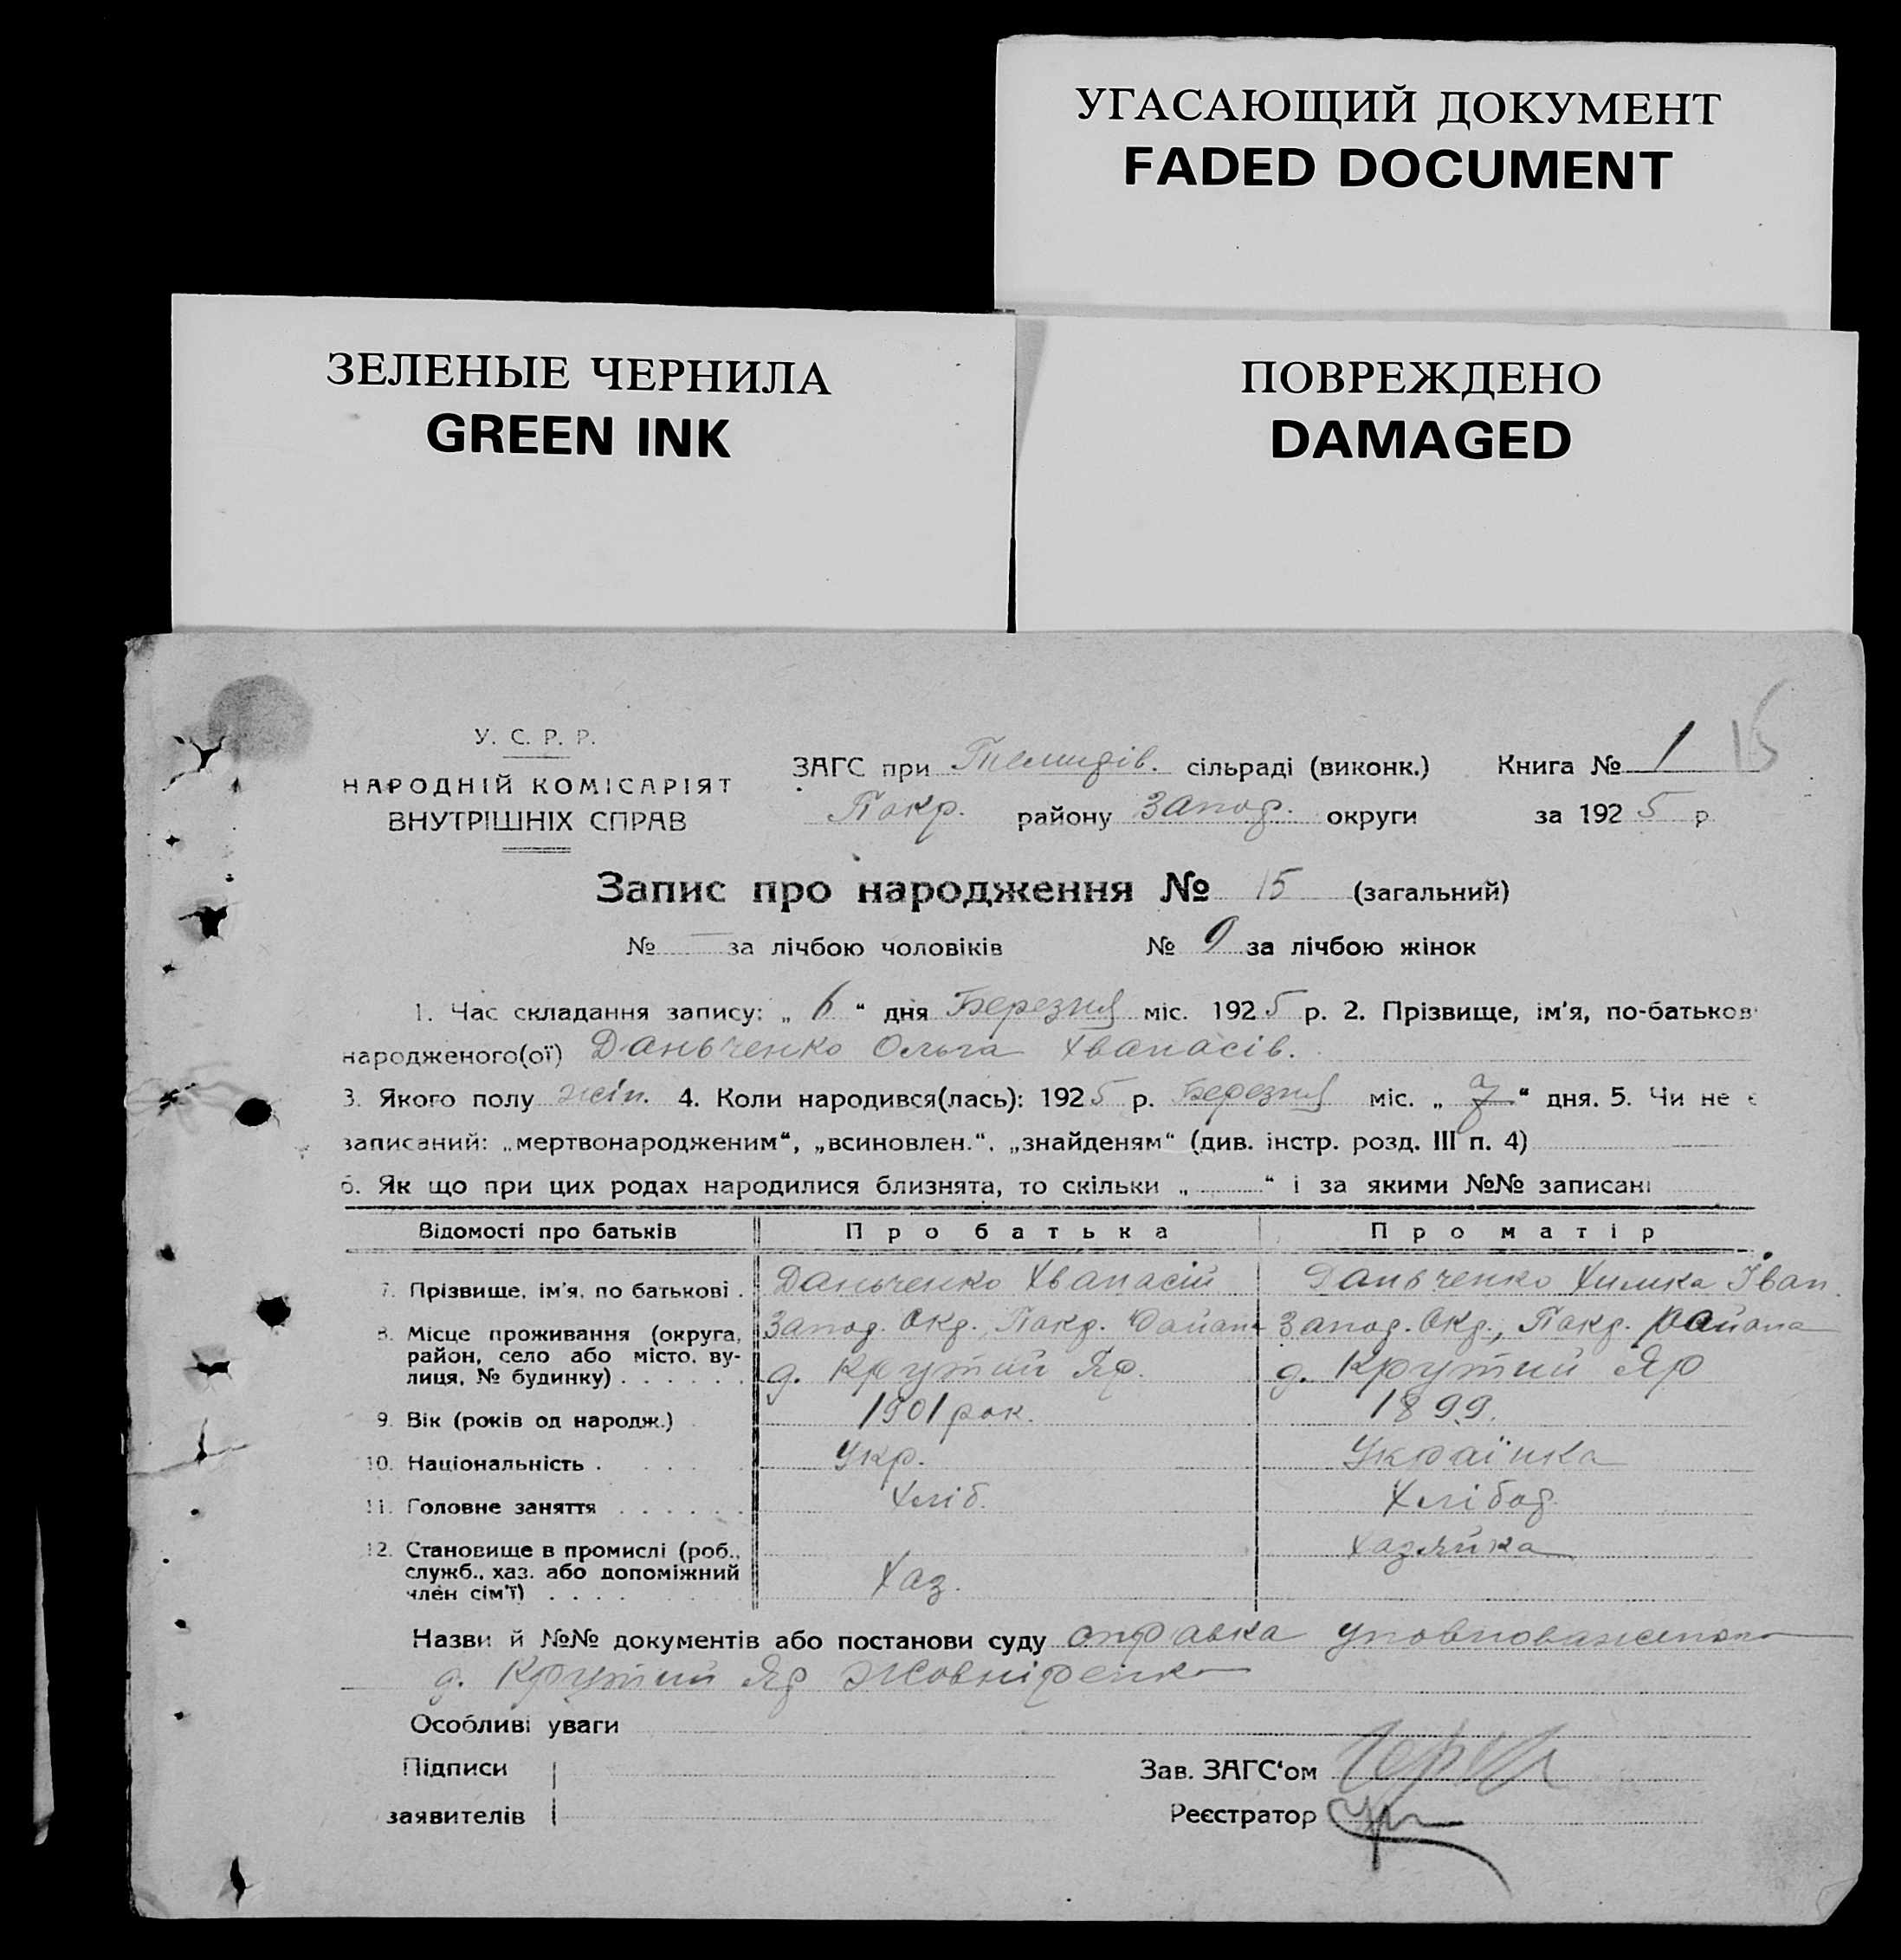 УГАСАЮЩИЙ ДОКУМЕНТ
FADED DOCUMENT
ЗЕЛЕНЫЕ ЧЕРНИЛА
GREEN INK
ПОВРЕЖДЕНО
DAMAGED
У. С. Р. Р.
НАРОДНІЙ КОМІСАРІЯТ
ВНУТРІШНІХ СПРАВ
ЗАГС при сільраді (виконк.) Книга № 1 15
Покр. району Запор. округи за 1925 р
Запис про народження № 15 (загальний)
№ — за лічбою чоловіків № 9 за лічбою жінок
1. Час складання запису: „ 6 “ дня Березня міс. 1925 р. 2. Прізвище, ім'я, по-батьков
народженого(ої) Даньченко Ольга Хванасів.
3. Якого полу жін. 4. Коли народився(лась): 1925 р. Березня міс. „ “ дня. 5. Чи не є
записаний: „мертвонародженим“, „всиновлен.“, „знайденям“ (див. інстр. розд. III п. 4)
6. Як що при цих родах народилися близнята, то скільки „ “ і за якими №№ записані
Відомості про батьків Про батька Про матір
7. Прізвище, ім'я, по батькові . Даньченко Хванасій Даньченко Химка Іван.
8. Місце проживання (округа, район, село або місто, ву-лиця, № будинку) . . . . . . Запор. Окр., Покр. Району д. Крутий Яр. Запор. Окр., Покр. району д. Крутий Яр
9. Вік (років од народж.) 1901 рок. 1899.
10. Національність . Укр. Українка
11. Головне заняття . . . . . . Хліб. Хлібор.
12. Становище в промислі (роб., служб., хаз. або допоміжний член сім'ї) . . . . Хаз. Хазяйка
Назви й №№ документів або постанови суду справка уповноваженого
д. Крутий Яр Жовніренко
Особливі уваги
Підписи Зав. ЗАГС'ом
заявителів Реєстратор